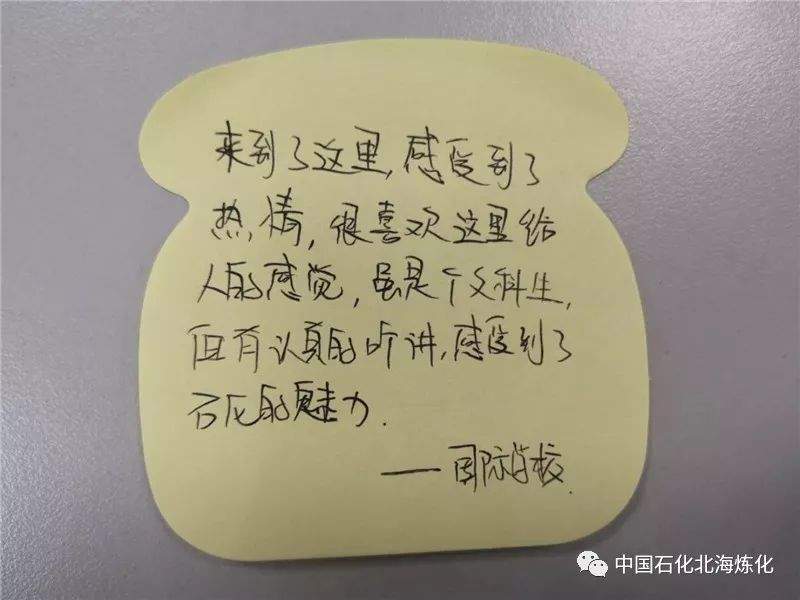 来到了这里,感受到了
热情,很喜欢这里给
人的感觉,虽是个文科生,
但有认真的听讲,感受到了
石化的魅力.
——国际学校.
中国石化北海炼化